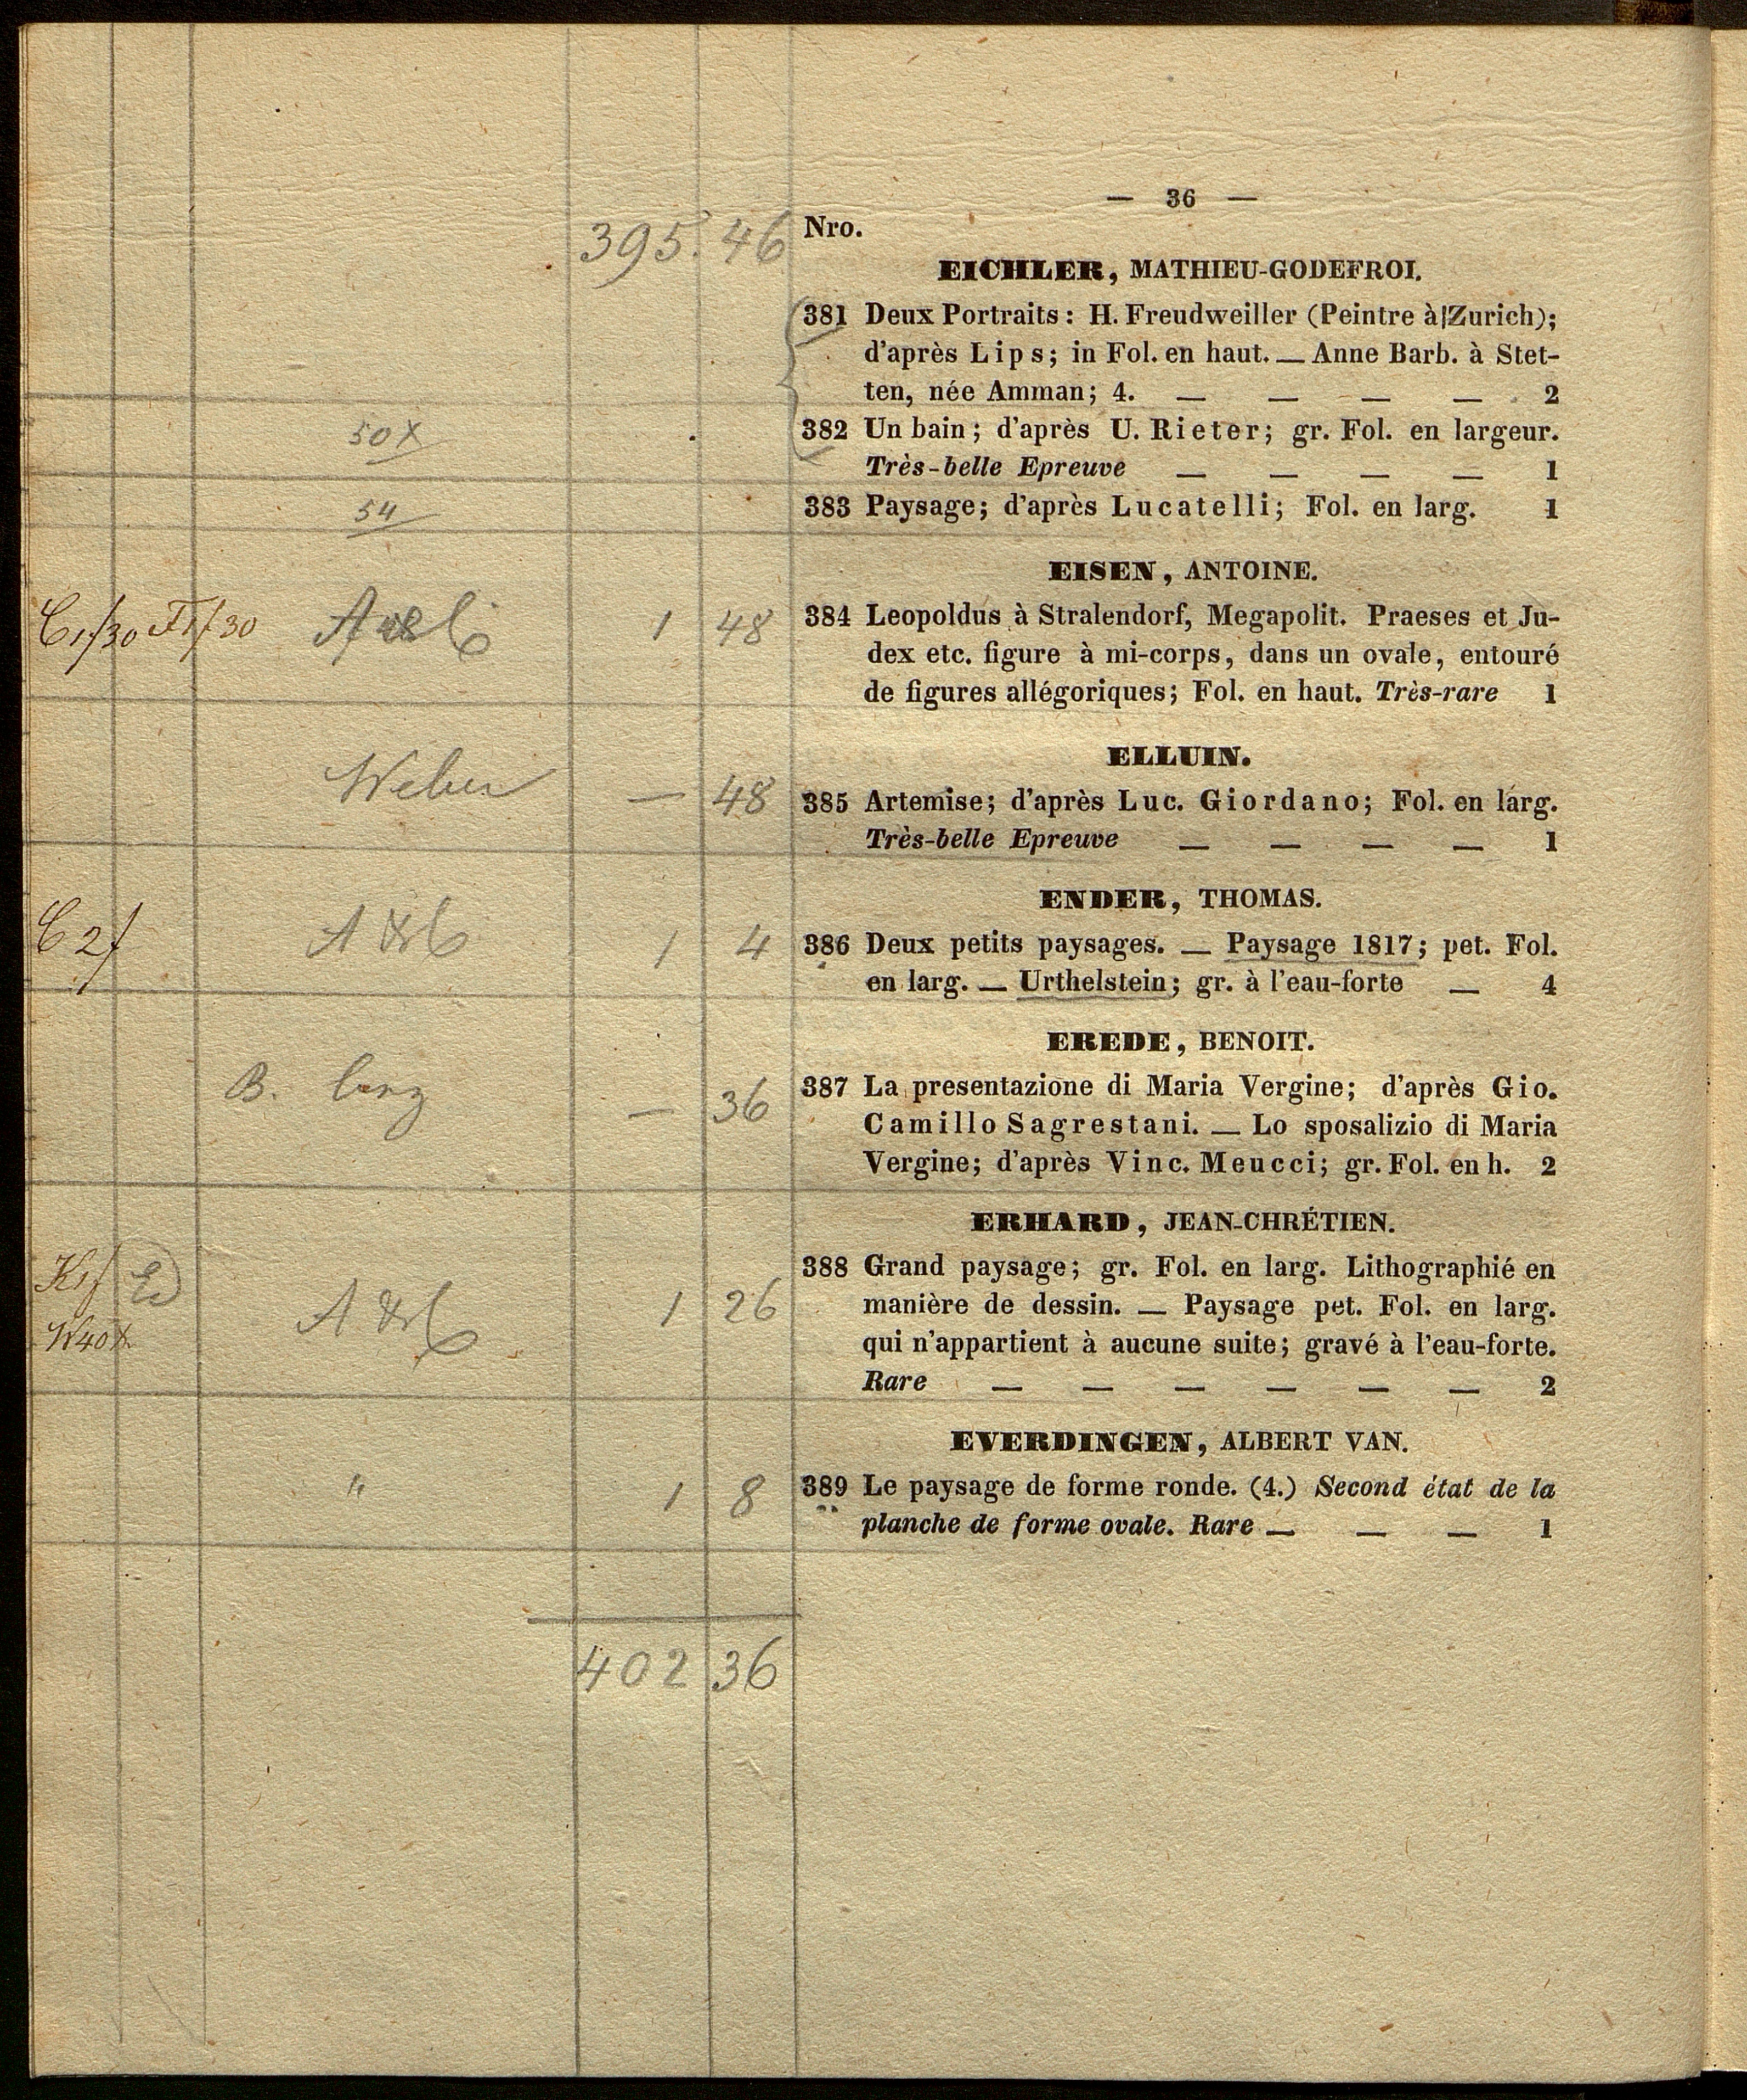 — 36 —
395. 46 Nro.
EICHLER, MATHIEU-GODEFROI.
381 Deux Portraits: H. Freudweiller (Peintre à Zurich);
d'après Lips; in Fol. en haut. — Anne Barb. à Stet-
ten, née Amman; 4. — — — — 2
50x 382 Un bain; d'après U. Rieter; gr. Fol. en largeur.
Très-belle Epreuve — — — — 1
54 383 Paysage; d'après Lucatelli; Fol. en larg. 1
EISEN, ANTOINE.
C1f30 F1f30 1 48 384 Leopoldus à Stralendorf, Megapolit. Praeses et Ju-
dex etc. figure à mi-corps, dans un ovale, entouré
de figures allégoriques; Fol. en haut. Très-rare 1
ELLUIN.
Weber — 48 385 Artemise; d'après Luc. Giordano; Fol. en larg.
Très-belle Epreuve — — — — 1
ENDER, THOMAS.
C 2f 1 4 386 Deux petits paysages. — Paysage 1817; pet. Fol.
en larg. — Urthelstein; gr. à l'eau-forte — 4
EREDE, BENOIT.
B. — 36 387 La presentazione di Maria Vergine; d'après Gio.
Camillo Sagrestani. — Lo sposalizio di Maria
Vergine; d'après Vinc. Meucci; gr. Fol. en h. 2
ERHARD, JEAN-CHRÉTIEN.
K1f 388 Grand paysage; gr. Fol. en larg. Lithographié en
W40x 1 26 manière de dessin. — Paysage pet. Fol. en larg.
qui n'appartient à aucune suite; gravé à l'eau-forte.
Rare — — — — — — 2
EVERDINGEN, ALBERT VAN.
" 1 8 389 Le paysage de forme ronde. (4.) Second état de la
planche de forme ovale. Rare — — — 1
402 36